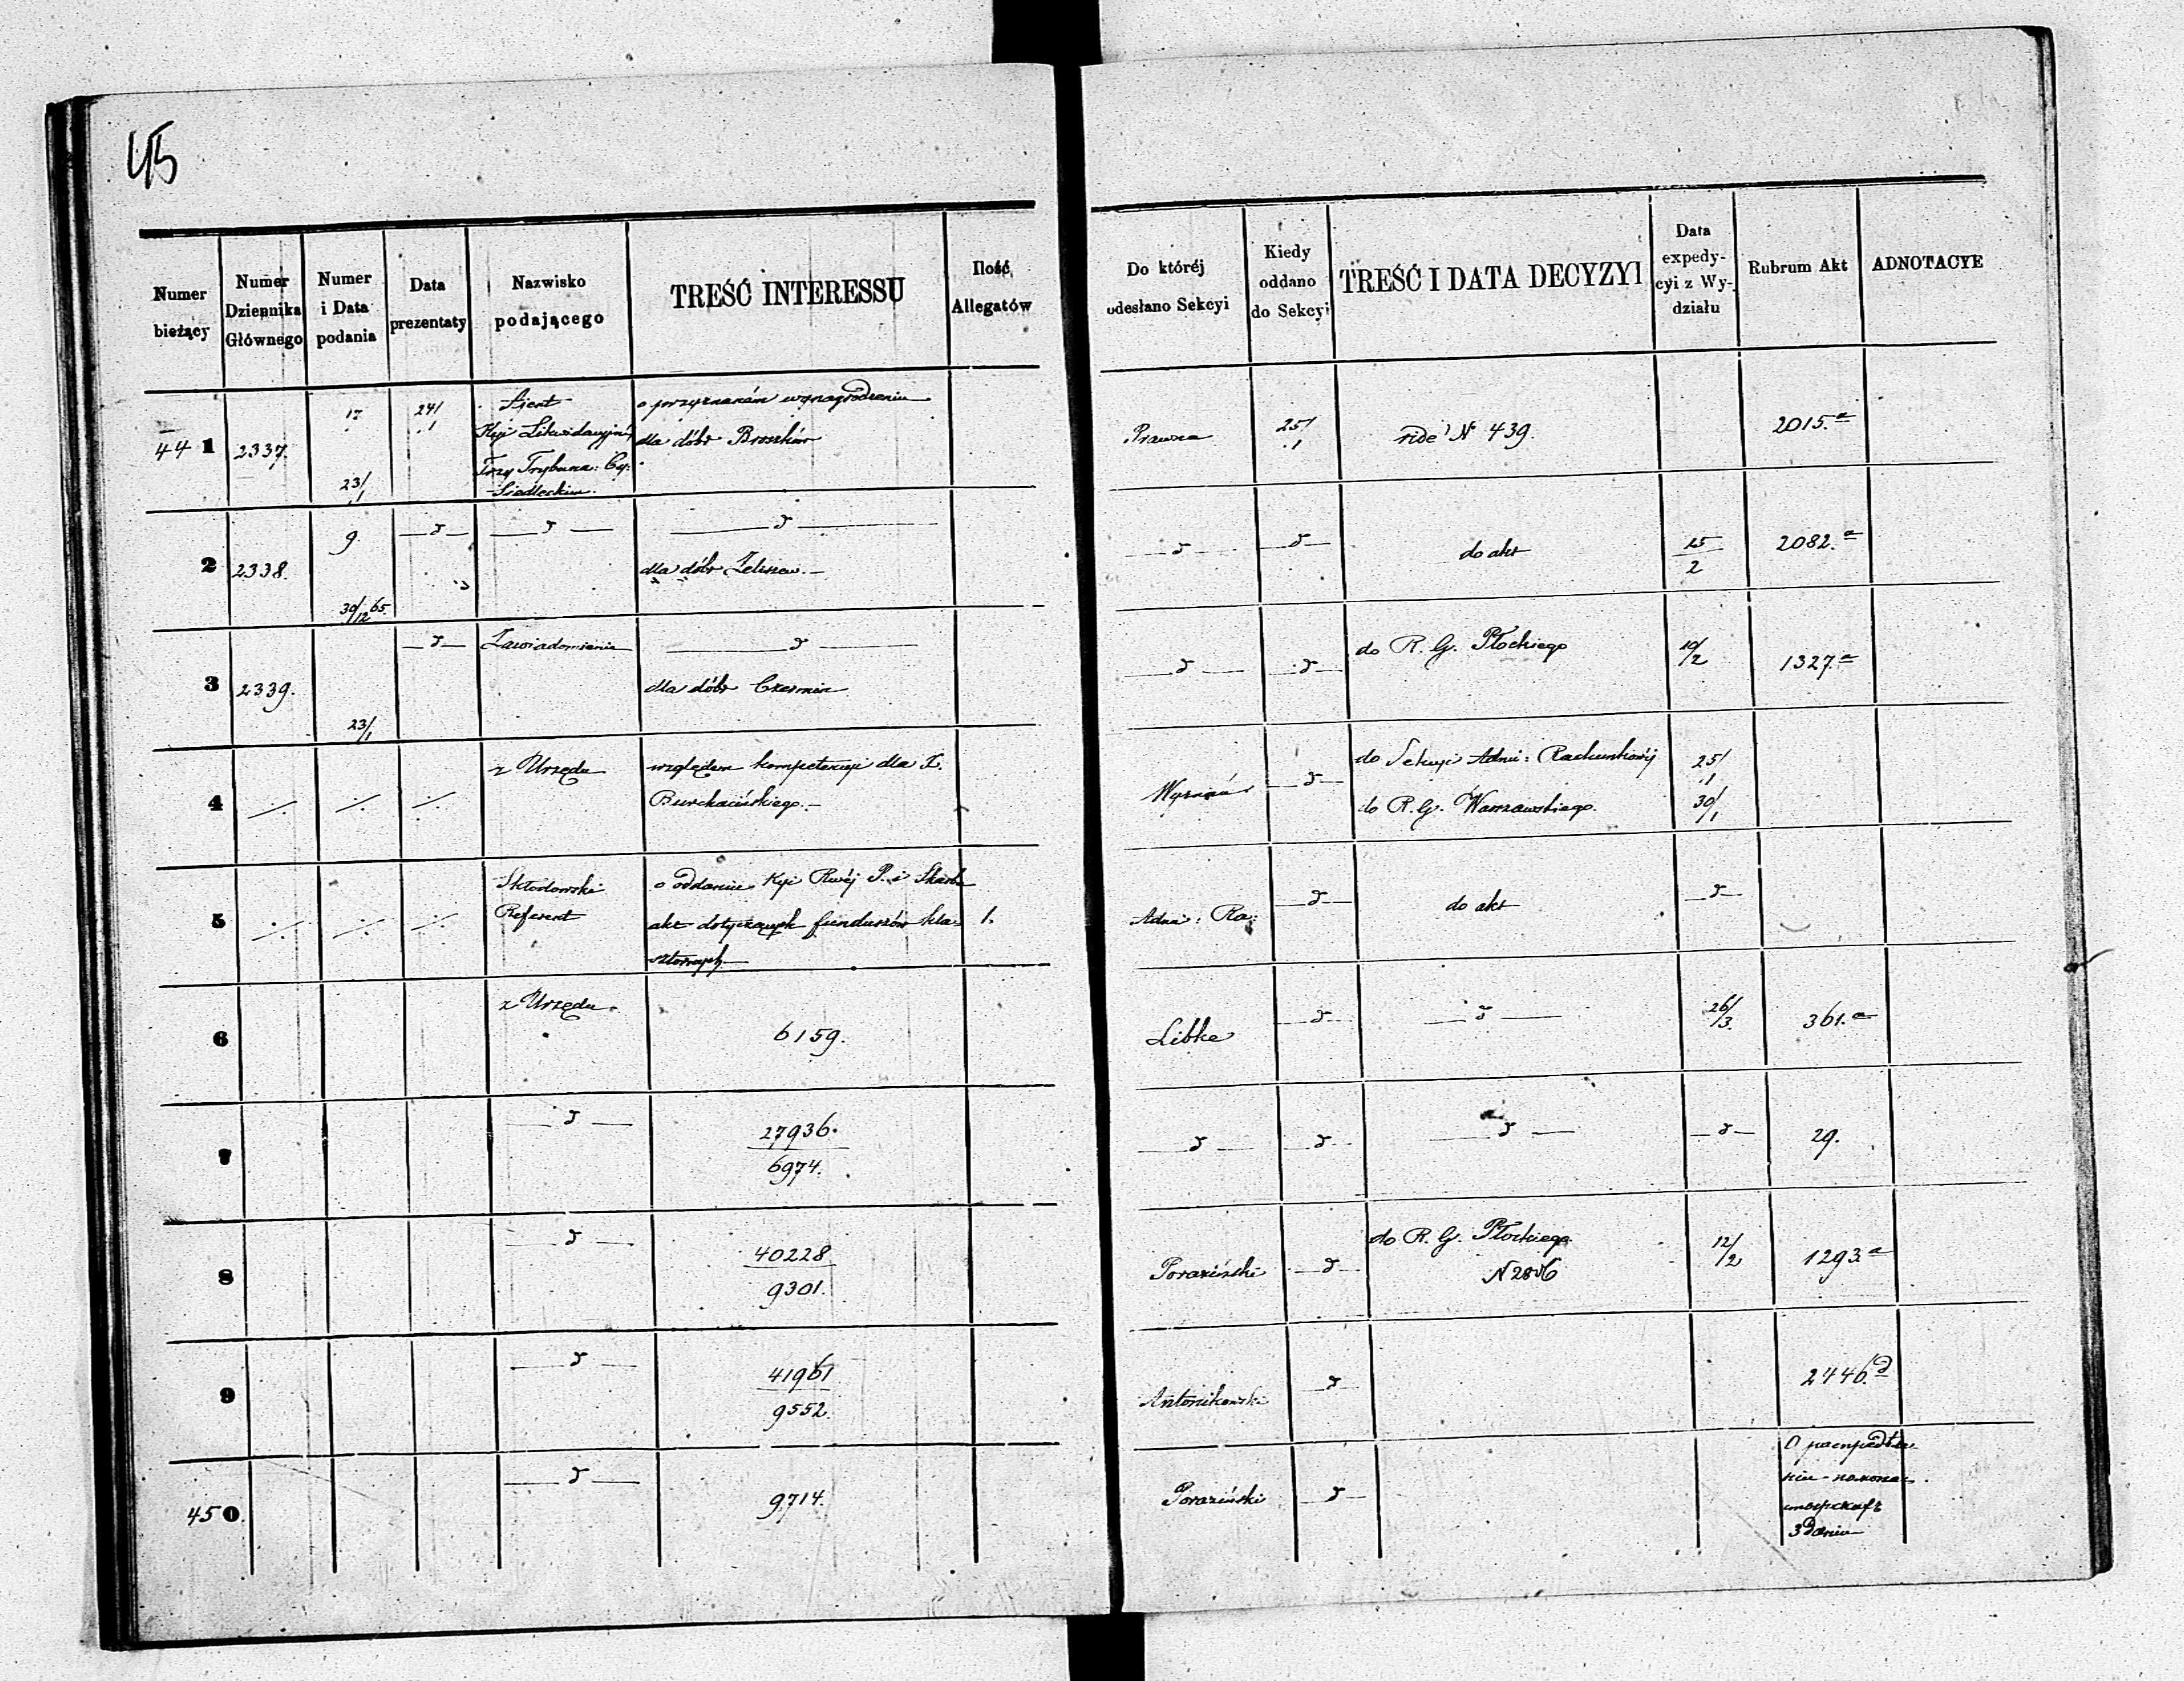 45
Numer bieżący
Numer Dziennika Głównego
Numer i Data podania
Data prezentaty
Nazwisko podającego
TREŚĆ INTERESSU
Ilość Allegatów
Do któréj odesłano Sekcyi
Kiedy oddano do Sekcyi
TREŚĆ I DATA DECYZYI
Data expedycyi z Wydziału
Rubrum Akt
ADNOTACYE
441 2337. 17 23/1 24/1
Ajent
Kyi Likwidacyjnéj
Przy Trybuna: Cy:
Siedleckim.
o przyznaném wynagrodzeniu
dla dóbr Broszków
Prawna 25/1 vide N 439. 2015.a
2 2338. 9. 30/12 65. —d— —d— —d—
dla dóbr Żeliszew.—
—d— —d— do akt 15/2 2082.a
3 2339. 23/1 —d— Zawiadomienie —d—
dla dóbr Czermin
—d— —d— do R. G. Płockiego 10/2 1327.a
4 z Urzędu
względem kompetencyi dla X.
—d—
do Sekcyi Adm: Rachunkowéj 25/1
do R. G. Warszawskiego. 30/1
5 Skłodowski
Referent
o oddanie Kyi Rwéj P. i Skarbu
akt dotyczących funduszów kla-
sztornych
1.
Adm: Ra: —d— do akt —d—
6 z Urzędu 6159. Libke —d— —d— 26/3. 361.a
7 —d— 27936. 6974. —d— —d— —d— —d— 29.
8 —d— 40228 9301. Poraziński —d— do R. G. Płockiego 12/2 1293a
9 —d— 41961 9552. Antonikowski —d— 2446.d
450. —d— 9714. Poraziński —d—
О распредѣле-